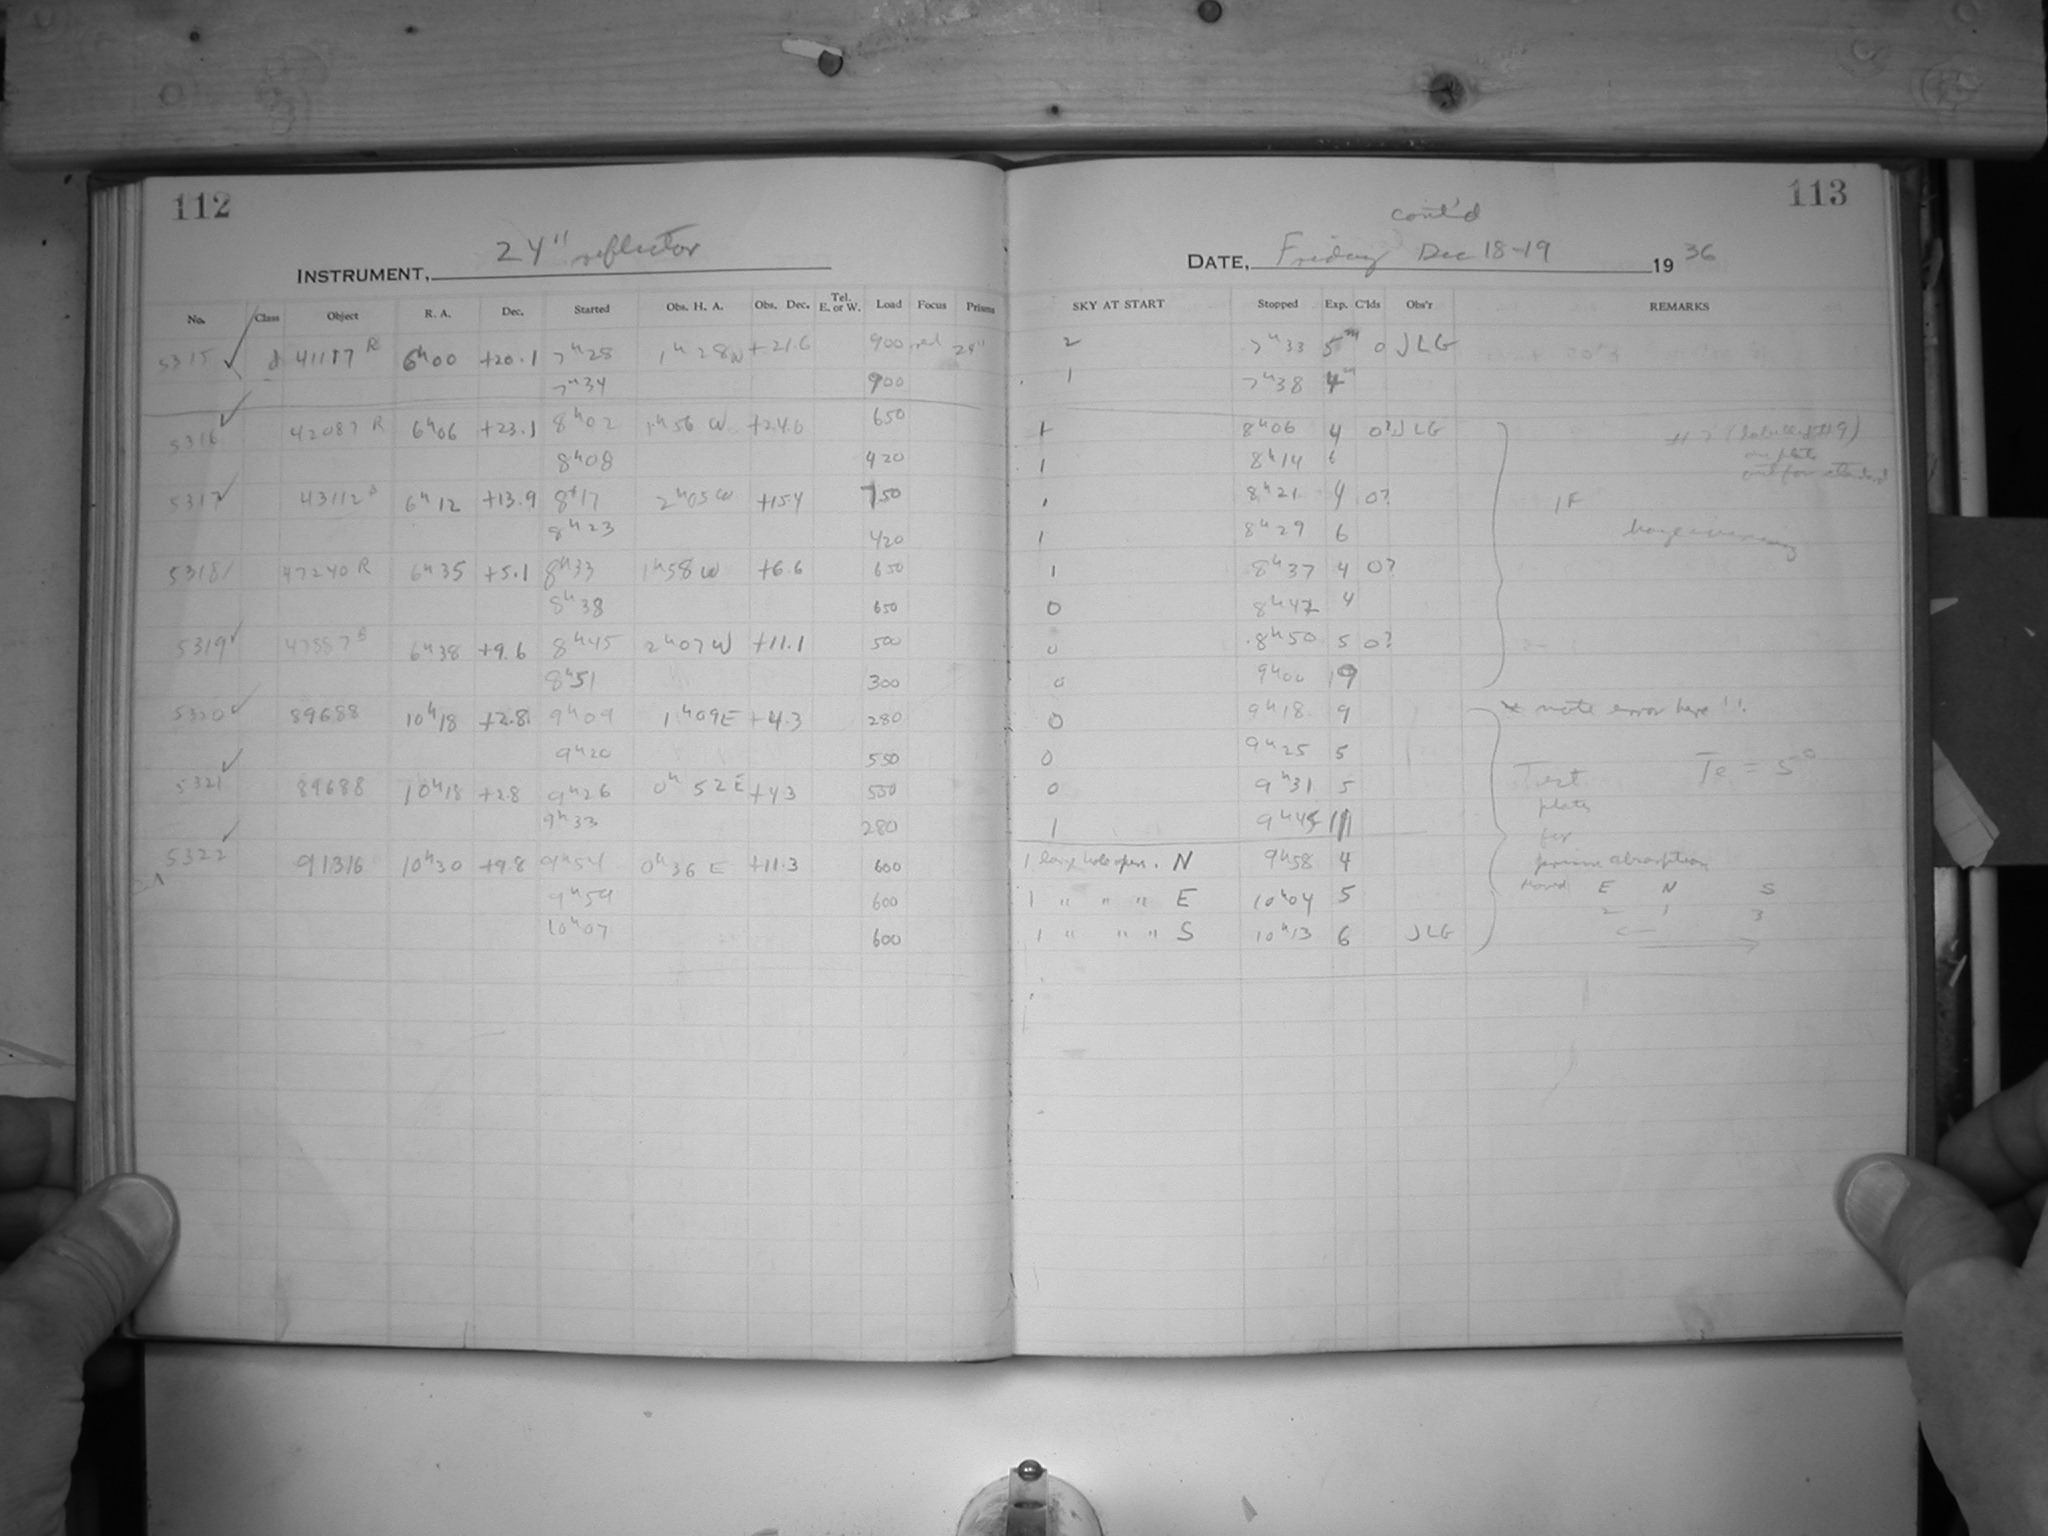 112
INSTRUMENT, 24" reflector
No. Class Object R. A. Dec. Started Obs. H. A. Obs. Dec. Tel. E. or W. Load Focus Prisms
5315 d 41117 R 6h00 +20.1 7h28 1h28W +21.6 900 red 24"
7h34 900
5316 42087 R 6h06 +23.1 8h02 1h56 W +24.6 650
8h08 420
5317 43112 B 6h12 +13.9 8h17 2h05W +15.4 750
8h23 420
5318 47240 R 6h35 +5.1 8h33 1h58W +6.6 650
8h38 650
5319 47887 B 6h38 +9.6 8h45 2h07W +11.1 500
8h51 300
5320 89688 10h18 +2.8 9h09 1h09E +4.3 280
9h20 550
5321 89688 10h18 +2.8 9h26 0h52E +4.3 550
9h33 280
5322 91316 10h30 +9.8 9h54 0h36 E +11.3 600
9h59 600
10h07 600
113
cont'd
DATE, Friday Dec 18-19 1936
SKY AT START Stopped Exp. C'lds Obs'r REMARKS
2 7h33 5m 0 JLG
1 7h38 4m
1 8h06 4 0? JLG
on plate
1 8h14 6
1 8h21 4 0? 1F
1 8h29 6
1 8h37 4 0?
0 8h47 4
0 8h50 5 0?
0 9h00 9
0 9h18 9 * note error here!!
0 9h25 5 Test Te = 5°
0 9h31 5 plates
1 9h45 11 for
1 large hole open. N 9h58 4 prism absorption
E N S
1 " " " E 10h04 5 2 1 3
1 " " " S 10h13 6 JLG